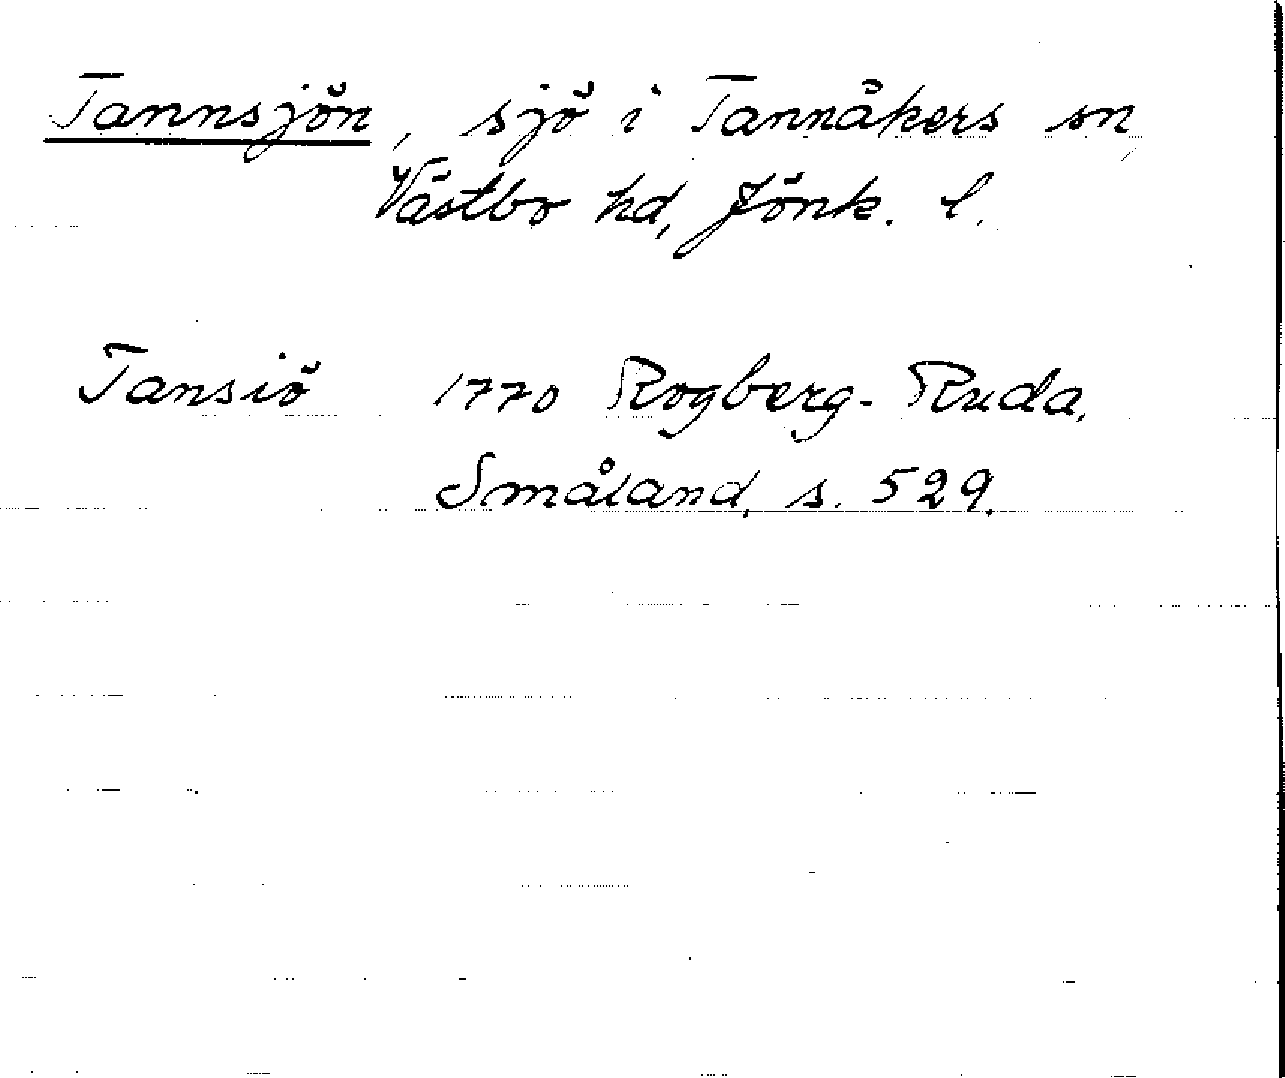 Tannsjön, sjö i Tannåkers sn,
Västbo hd, Jönk. l.
Tansiö 1770 Rogberg-Ruda,
Småland, s. 529.